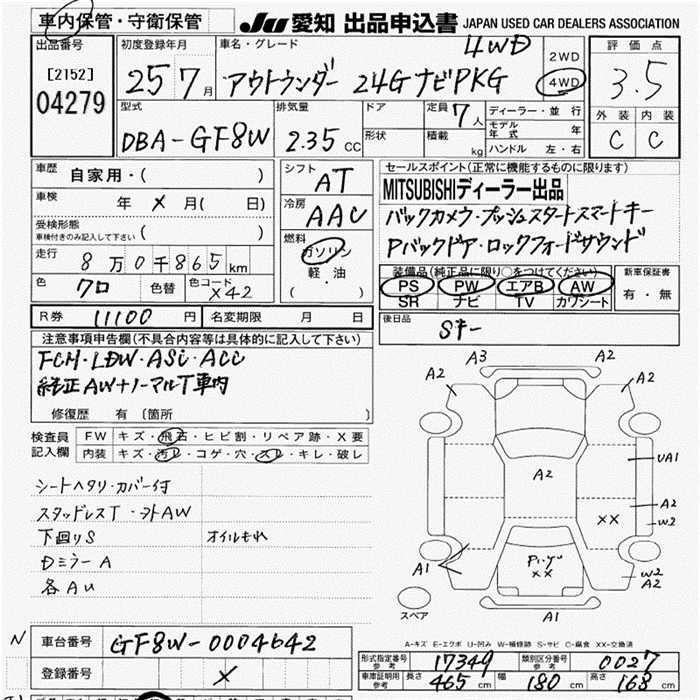 車内保管・守衛保管
JU 愛知 出品申込書 JAPAN USED CAR DEALERS ASSOCIATION
出品番号
[2152]
04279
初度登録年月
25 7月
車名・グレード
4WD
アウトランダー 24GナビPKG
2WD
4WD
評価点
3.5
外装 内装
C C
型式
DBA-GF8W
排気量
2.35 CC
ドア
形状
定員 7人
積載 kg
ディーラー・並行
モデル年式 年
ハンドル 左・右
車歴 自家用・( )
車検 年 × 月( 日)
受検形態
車検付きのみ記入して下さい ( )
走行 8万0千865km
色 クロ 色替 色コード X42
シフト AT
冷房 AAC
燃料
ガソリン
軽・油
( )
セールスポイント(正常に機能するものに限ります)
MITSUBISHIディーラー出品
バックカメラ・プッシュスタートスマートキー
Pバックドア・ロックフォードサウンド
装備品(純正品に限り○をつけてください)
PS PW エアB AW
SR ナビ TV カワシート
新車保証書
有・無
R券 11100 円 名変期限 月 日
後日品 Sキー
注意事項申告欄(不具合内容等は具体的に記入して下さい)
FCM・LDW・ASC・ACC
純正AW+ノーマルT車内
修復歴 有 〔箇所 〕
検査員記入欄
FW キズ・飛石・ヒビ割・リペア跡・X要
内装 キズ・汚レ・コゲ・穴・スレ・キレ・破レ
シートヘタリ・カバー付
スタッドレスT・外AW
下回りS オイルもれ
Dミラー A
各AU
A3
A2
A2
A2
UA1
A2
W2
××
××
A1
W2
A2
A1
スペア
A-キズ E-エクボ U-凹み W-補修跡 S-サビ C-腐食 XX-交換済
N
車台番号 GF8W-0004642
登録番号 ×
形式指定番号 参考 17349 類別区分番号 参考 0027
車庫証明用 参考 長さ 465 cm 幅 180 cm 高さ 168 cm